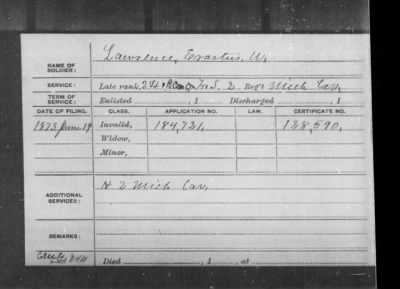 NAME OF SOLDIER: Lawrence, Erastus W.
SERVICE: Late rank, 2 Regt Mich Cav,
TERM OF SERVICE: Enlisted , 1 Discharged , 1
DATE OF FILING. CLASS. APPLICATION NO. LAW. CERTIFICATE NO.
1873 June 19 Invalid, 184,721, 128,590,
Widow,
Minor,
ADDITIONAL SERVICES: H. 2 Mich Cav,
REMARKS:
Died , 1 , at